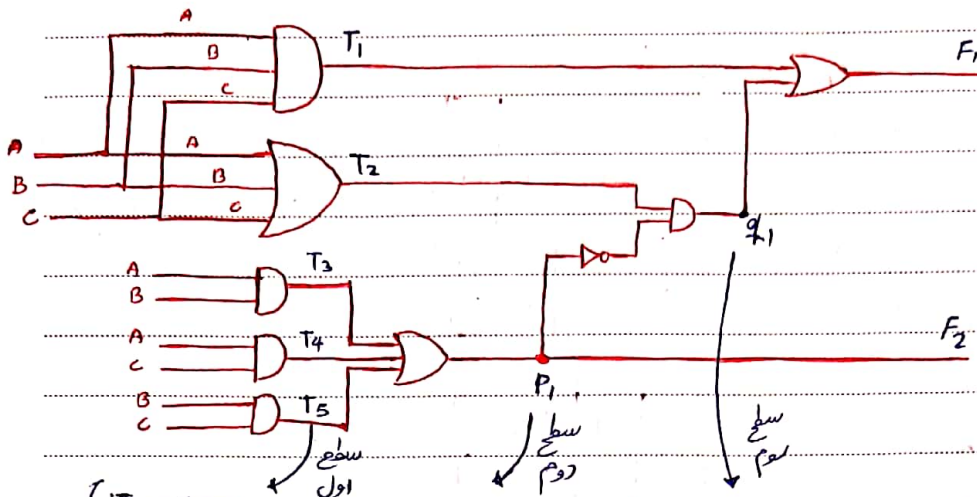 A
B
C
T1
F1
A
B
C
A
B
C
T2
q1
A
B
T3
A
C
T4
B
C
T5
P1
F2
سطح
اول
سطح
دوم
سطح
سوم